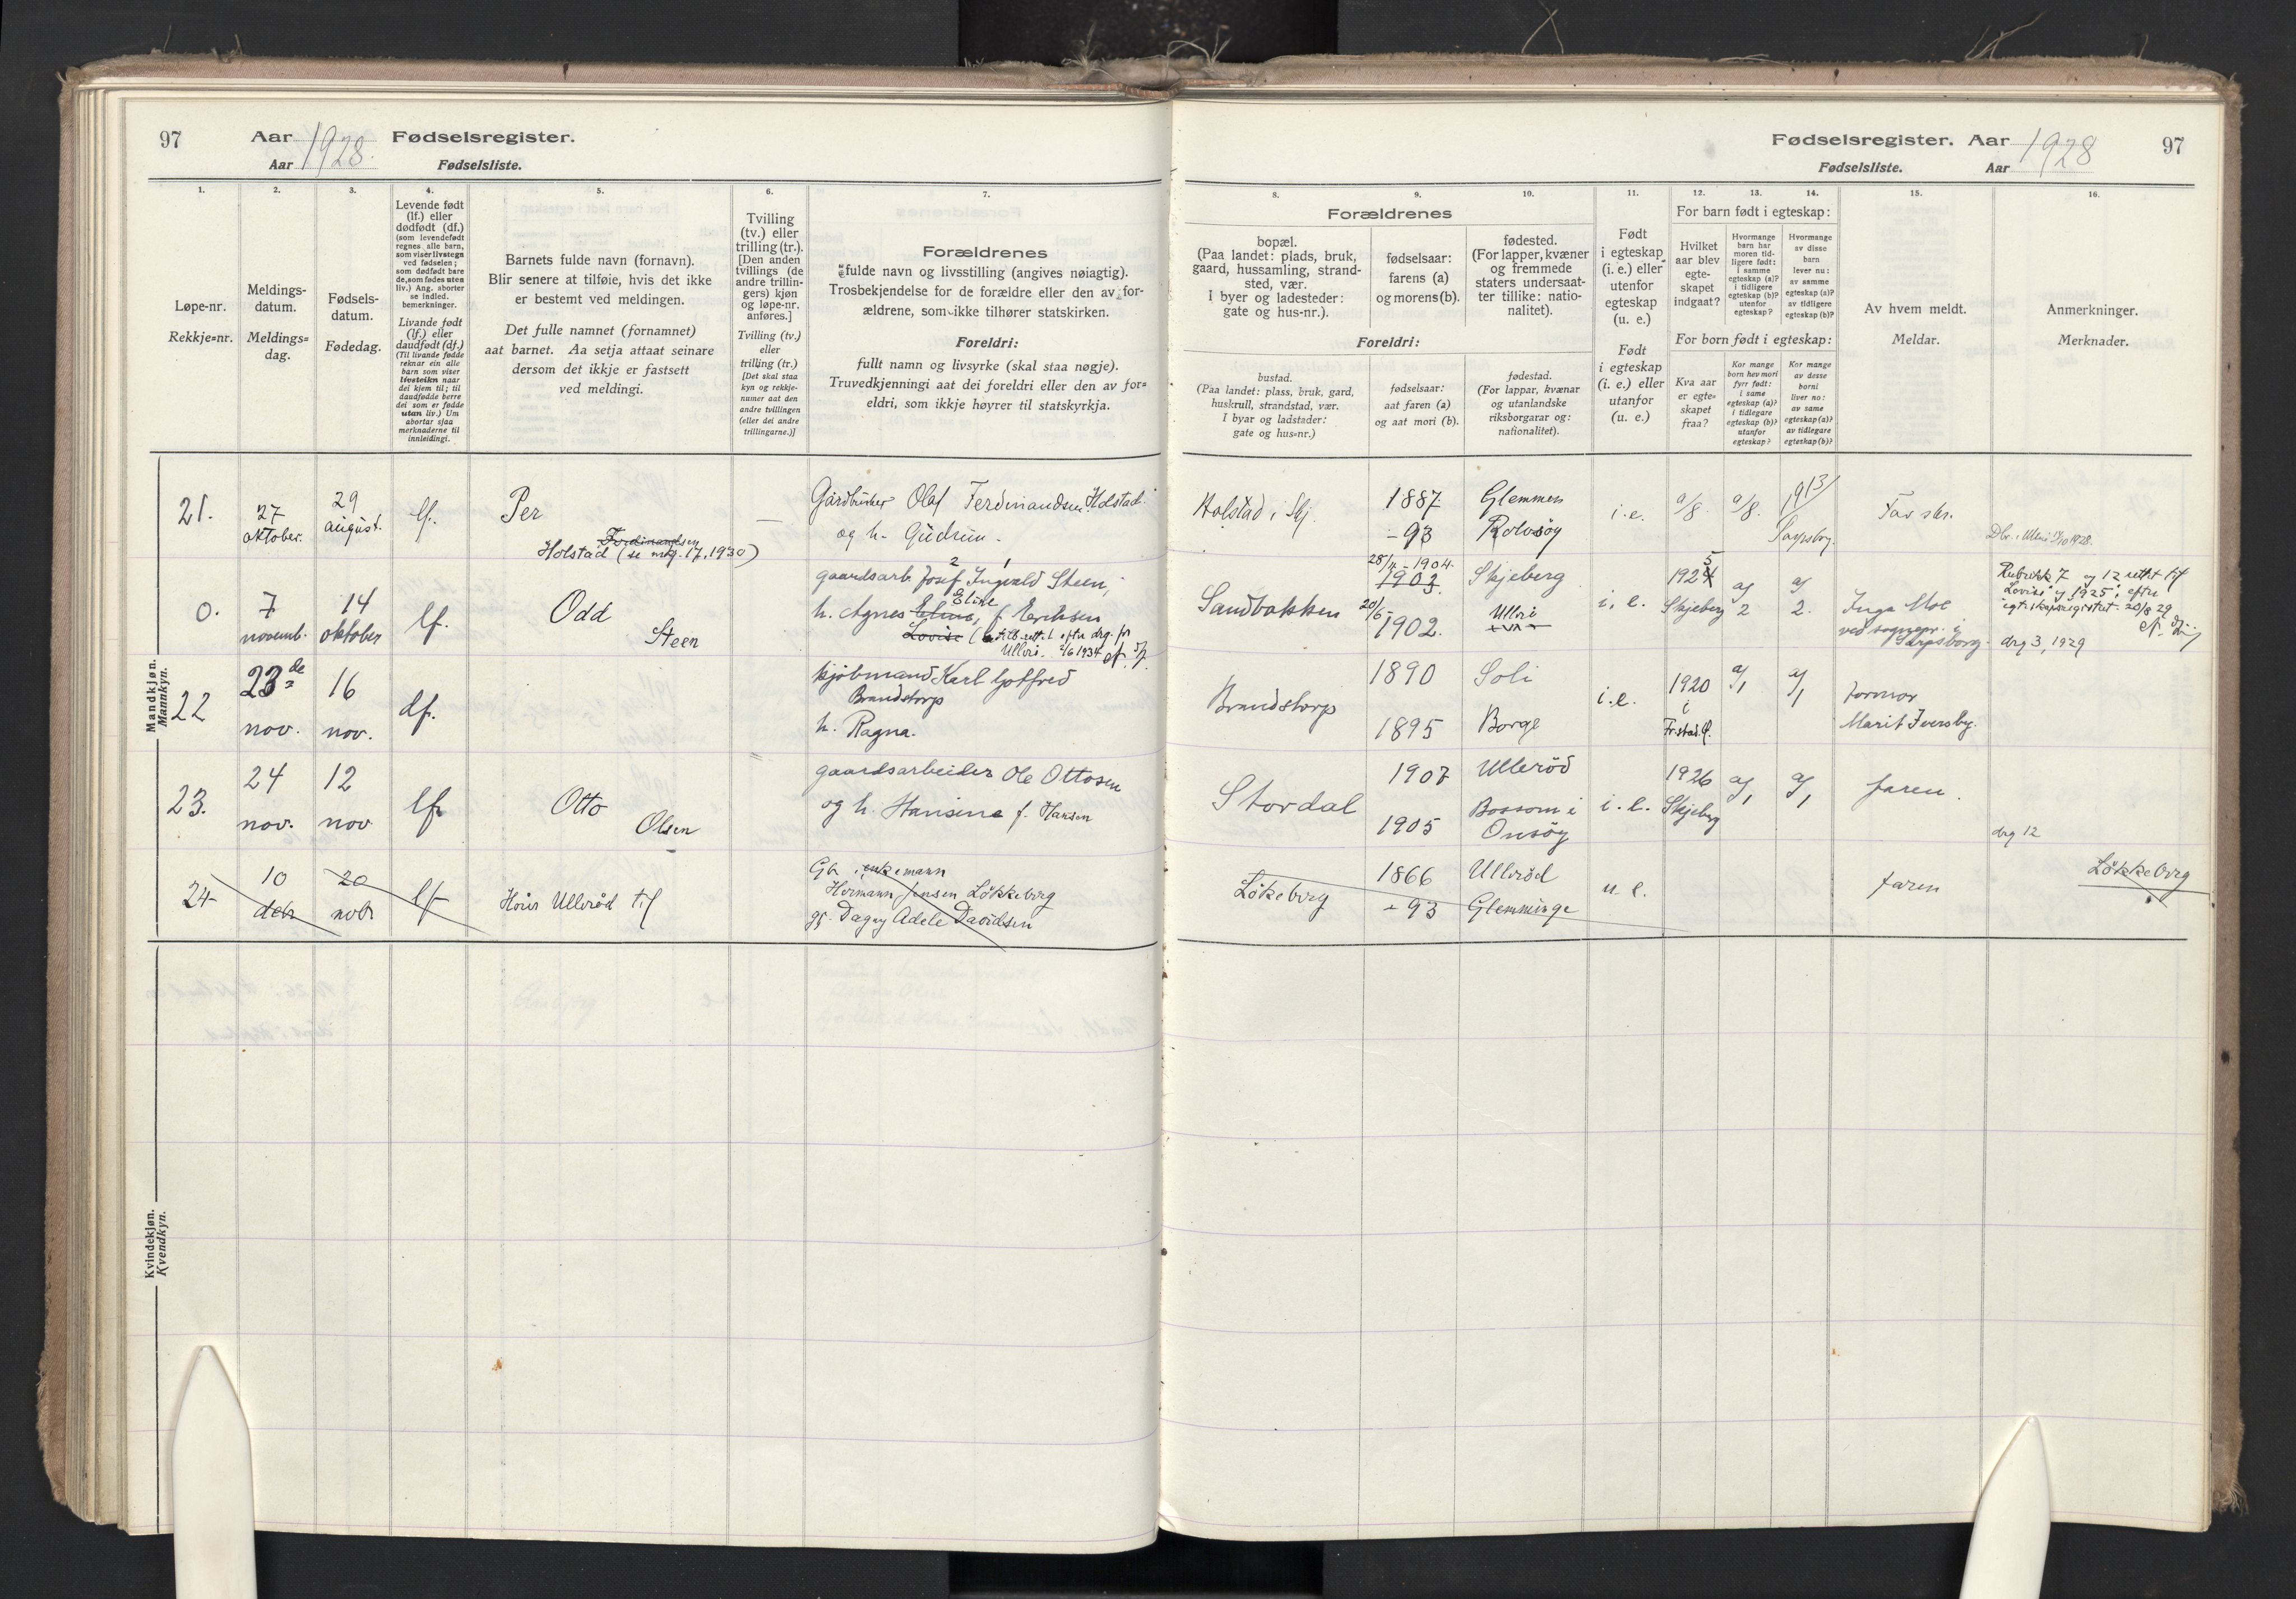 97 Aar 1928. Fødselsregister.
Aar Fødselsliste.
Fødselsregister. Aar 1928 97
Fødselsliste. Aar
1. 2. 3. 4. 5. 6. 7.
Løpe-nr.
Rekkje=nr.
Meldings-
datum.
Meldings=
dag.
Fødsels-
datum.
Fødedag.
Levende født
(lf.) eller
dødfødt (df.)
(som levendefødt
regnes alle barn,
som viser livstegn
ved fødselen;
som dødfødt bare
de, som fødes uten
liv.) Ang. aborter
se indled.
bemerkninger.
Livande født
(lf.) eller
daudfødt (df.)
(Til livande fødde
reknar ein alle
barn som viser
livsteikn naar
dei kjem til; til
daudfødde berre
dei som er fødde
utan liv.) Um
abortar sjaa
merknaderne til
innleiingi.
Barnets fulde navn (fornavn).
Blir senere at tilføie, hvis det ikke
er bestemt ved meldingen.
Det fulle namnet (fornamnet)
aat barnet. Aa setja attaat seinare
dersom det ikkje er fastsett
ved meldingi.
Tvilling
(tv.) eller
trilling (tr.).
[Den anden
tvillings (de
andre trillin-
gers) kjøn
og løpe-nr.
anføres.]
Tvilling (tv.)
eller
trilling (tr.)
[Det skal staa
kyn og rekkje-
numer aat den
andre tvillingen
(eller dei andre
trillingarne.)]
Forældrenes
fulde navn og livsstilling (angives nøiagtig).
Trosbekjendelse for de forældre eller den av for-
ældrene, som ikke tilhører statskirken.
Foreldri:
fullt namn og livsyrke (skal staa nøgje).
Truvedkjenningi aat dei foreldri eller den av for=
eldri, som ikkje høyrer til statskyrkja.
8. 9. 10. 11. 12. 13. 14. 15. 16.
Forældrenes
bopæl.
(Paa landet: plads, bruk,
gaard, hussamling, strand-
sted, vær.
I byer og ladesteder:
gate og hus-nr.).
fødselsaar:
farens (a)
og morens (b).
fødested.
(For lapper, kvæner
og fremmede
staters undersaat-
ter tillike: natio-
nalitet).
Foreldri:
bustad.
(Paa landet: plass, bruk, gard,
huskrull, strandstad, vær.
I byar og ladstader:
gate og hus=nr.)
fødselsaar:
aat faren (a)
og aat mori (b).
fødestad.
(For lappar, kvænar
og utanlandske
riksborgarar og:
nationalitet).
Født
i egteskap
(i. e.) eller
utenfor
egteskap
(u. e.)
Født
i egteskap
(i. e.) eller
utanfor
(u. e.)
For barn født i egteskap:
Hvilket
aar blev
egte-
skapet
indgaat?
Hvormange
barn har
moren tid-
ligere født:
i samme
egteskap (a)?
i tidligere
egteskap (b)?
utenfor
egteskap?
Hvormange
av disse
barn
lever nu:
av samme
egteskap (a)?
av tidligere
egteskap (b)?
For born født i egteskap:
Kva aar
er egte=
skapet
fraa?
Kor mange
born hev mori
fyrr født:
i same
egteskap (a)?
i tidlegare
egteskap (b)?
utanfor
egteskap?
Kor mange
av desse
borni
liver no:
av same
egteskap (a)?
av tidlegare
egteskap (b)?
Av hvem meldt.
Meldar.
Anmerkninger.
Merknader.
Mandkjøn.
Mannkyn.
21. 27 oktober. 29 august. lf. Per
Ferdinandsen
Holstad (se mrg. 17, 1930)
Gårdbruker Olaf Ferdinandsen Holstad
og h. Gudrun.
Holstad i Skj. 1887 Glemmen
- 93 Rolvsøy
i.e. a/8. a/8. 1913/ Sarpsborg. Far skr.
0. 7 novemb. 14 oktober lf. Odd
Steen
2 1
gaardsarb. Josef Ingvald Steen,
h. Agnes Elise, f. Eriksen
Lovise
Ullerö. 2/6 1934
Sandbakken 28/4 - 1904. 1903 Skjeberg
20/6 - 1902. Ullerö
i. e. 1924 5 Skjeberg a/2 a/2.
Inga Moe
ved sognepr. i
Sarpsborg.
Rubrikk 7 og 12 rettet til
Lovise og 1925, efter
egteskapsregistret. 20/8 29
drg 3, 1929
22 23de nov. 16 nov. df.
kjøbmand Karl Gotfred
Brandstorp
h. Ragna.
Brandstorp 1890 Soli
1895 Borge
i.e. 1920 i Fr.stad. a/1 a/1
formor
Marit Iversby.
23. 24 nov. 12 nov lf. Otto
Olsen
gaardsarbeider Ole Ottosen
og h. Hansine f. Hansen
Stordal 1907 Ullerød
1905 Bossom i
Onsøy
i. e. 1926 Skjeberg a/1 a/1 faren.
drg 12
24 10 debr 20 nobr lf Hörer Ullerød til
Gb. enkemann
Hermann Jensen Lökkeberg
gf. Dagny Adele Davidsen
Lökeberg 1866 Ullerød
- 93 Glemminge
u. e. faren Lökkeberg
Kvindekjøn.
Kvendkyn.